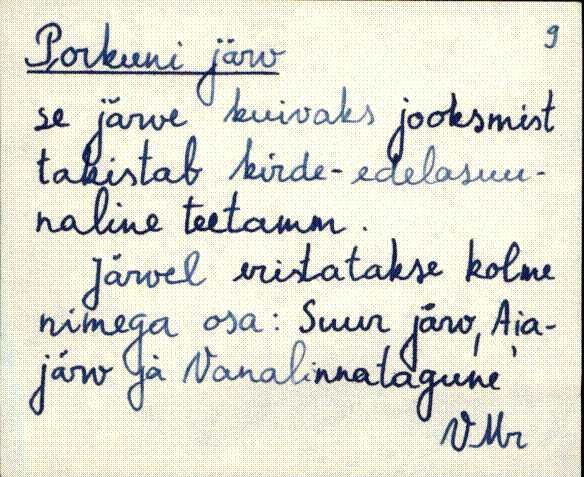 Porkuni järv 9
se järve kuivaks jooksmist
takistab kirde-edelasuu-
naline teetamm.
Järvel eristatakse kolme
nimega osa: Suur järv, Aia-
järv ja Vanalinnatagune
VMr